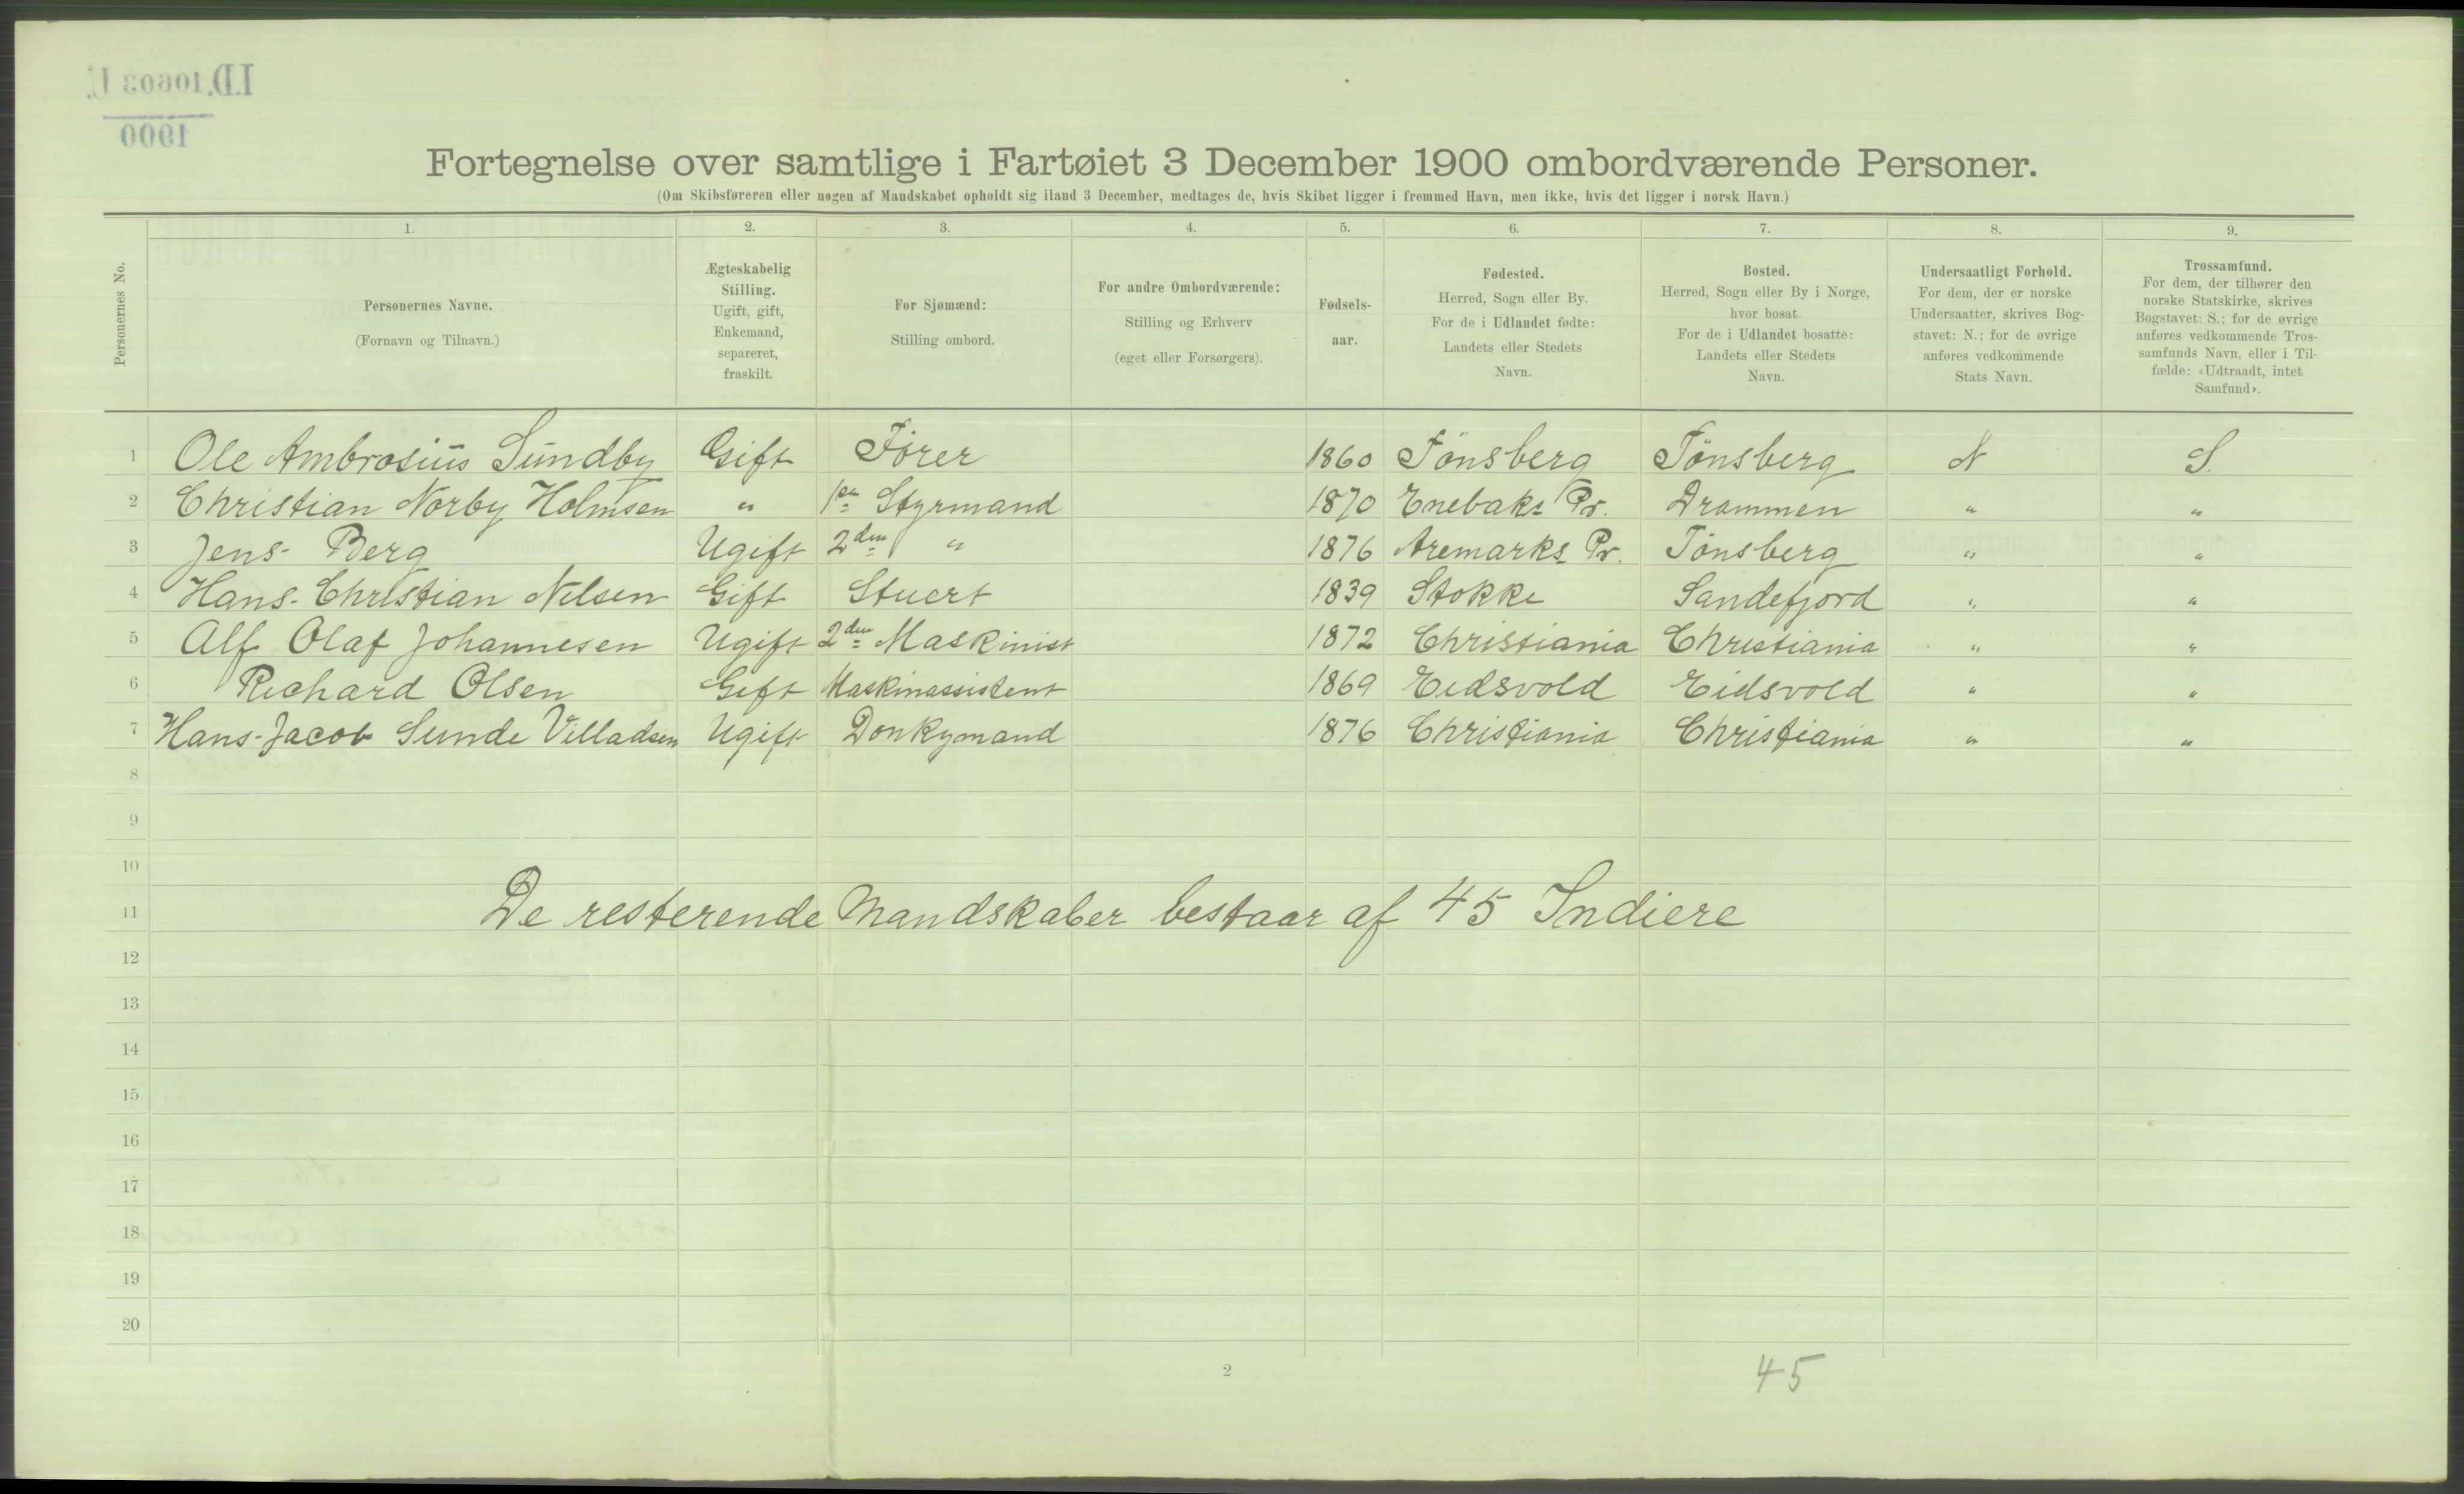 I.D. 10603 U.
1900
Fortegnelse over samtlige i Fartøiet 3 December 1900 ombordværende Personer.
(Om Skibsføreren eller nogen af Mandskabet opholdt sig iland 3 December, medtages de, hvis Skibet ligger i fremmed Havn, men ikke, hvis det ligger i norsk Havn.)
Personernes No.
1. 2. 3. 4. 5. 6. 7. 8. 9.
Personernes Navne.
(Fornavn og Tilnavn.)
Ægteskabelig
Stilling.
Ugift, gift,
Enkemand,
separeret,
fraskilt.
For Sjømænd:
Stilling ombord.
For andre Ombordværende:
Stilling og Erhverv
(eget eller Forsørgers).
Fødsels-
aar.
Fødested.
Herred, Sogn eller By.
For de i Udlandet fødte:
Landets eller Stedets
Navn.
Bosted.
Herred, Sogn eller By i Norge,
hvor bosat.
For de i Udlandet bosatte:
Landets eller Stedets
Navn.
Undersaatligt Forhold.
For dem, der er norske
Undersaatter, skrives Bog-
stavet: N.; for de øvrige
anføres vedkommende
Stats Navn.
Trossamfund.
For dem, der tilhører den
norske Statskirke, skrives
Bogstavet: S.; for de øvrige
anføres vedkommende Tros-
samfunds Navn, eller i Til-
fælde: «Udtraadt, intet
Samfund».
1 Ole Ambrosius Sundby Gift Förer 1860 Tönsberg Tönsberg N S.
2 Christian Norby Holmsen " 1ste Styrmand 1870 Enebaks Pr. Drammen " "
3 Jens Berg Ugift 2den " 1876 Aremarks Pr. Tönsberg " "
4 Hans-Christian Nilsen Gift Stuert 1839 Stokke Sandefjord " "
5 Alf Olaf Johannesen Ugift 2den Maskinist 1872 Christiania Christiania " "
6 Richard Olsen Gift Maskinassistent 1869 Eidsvold Eidsvold " "
7 Hans-Jacob Sunde Villadsen Ugift Donkymand 1876 Christiania Christiania " "
8
9
10
11 De resterende Mandskaber bestaar af 45 Indiere
12
13
14
15
16
17
18
19
20
2
45